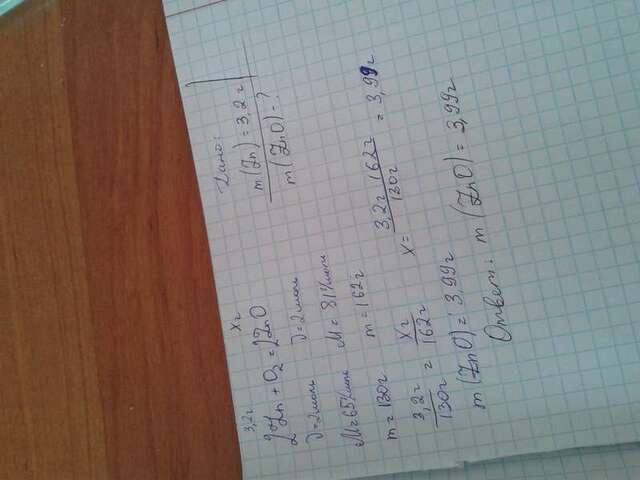 Дано:
m(Zn) = 3,2 г
m(ZnO) - ?
3,2г Xг
2Zn + O2 = 2ZnO
ν=2моль ν=2моль
M=65г/моль M=81г/моль
m=130г m=162г
3,2г/130г = Xг/162г X= 3,2г 162г/130г = 3,99г
m(ZnO) = 3,99г
Ответ: m(ZnO) = 3,99г